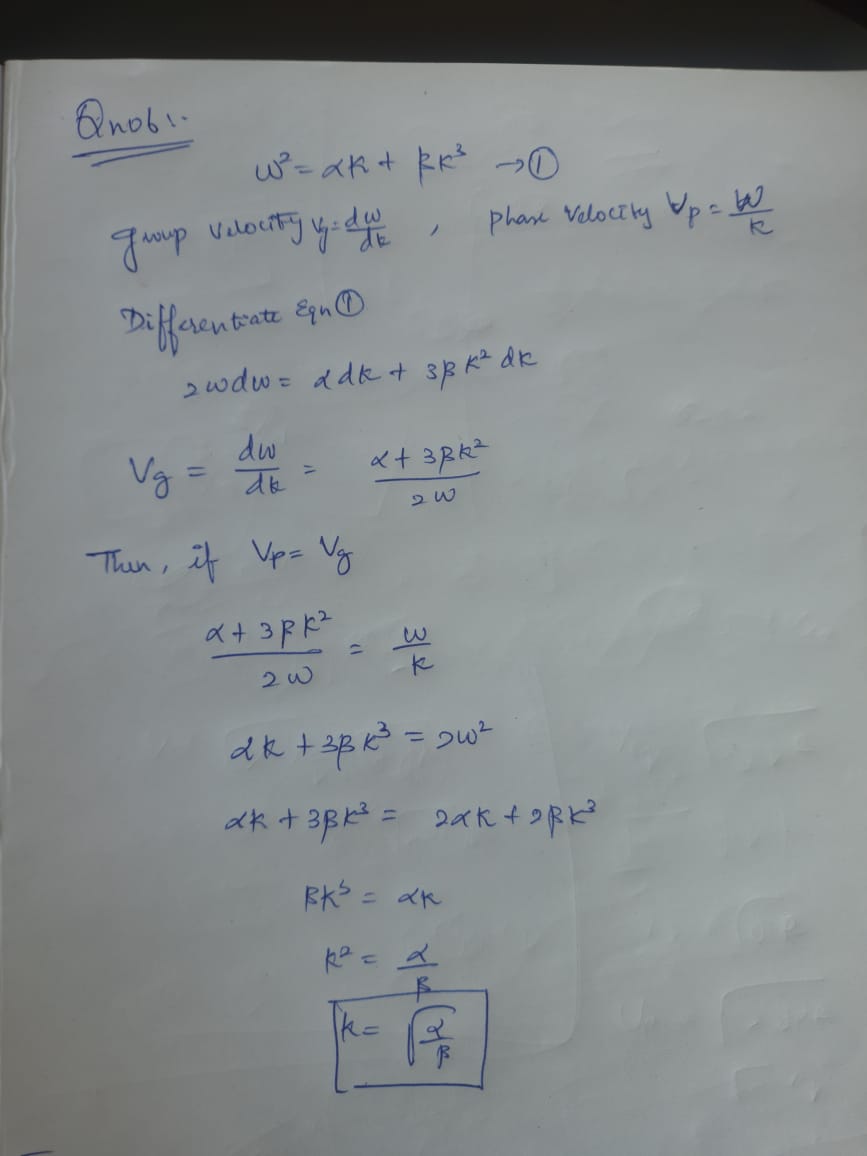 Qno61:
ω² = αk + βk³ → ①
group velocity vg = dω/dk , phase velocity Vp = ω/k
Differentiate Eqn ①
2ωdω = αdk + 3βk² dk
Vg = dω/dk = (α + 3βk²)/2ω
Then, if Vp = Vg
(α + 3βk²)/2ω = ω/k
αk + 3βk³ = 2ω²
αk + 3βk³ = 2αk + 2βk³
βk³ = αk
k² = α/β
k = √(α/β)